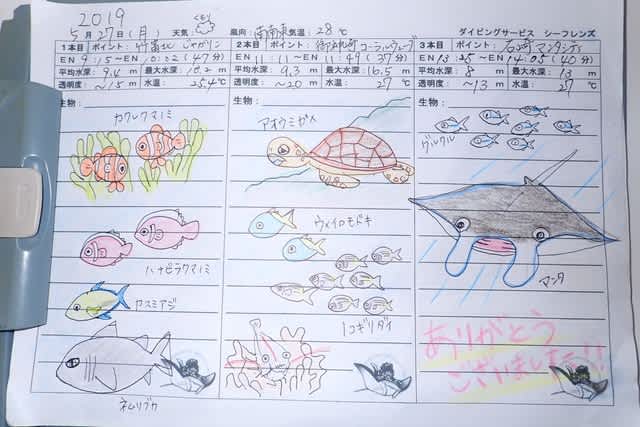 2019
5月27日(月) 天気: くもり 風向: 南南東 気温: 28℃ ダイビングサービス シーフレンズ
1本目 ポイント: 竹富北 2本目 ポイント: コーラルウェーブ 3本目 ポイント: 石崎 マンタシティ
EN 9:15~EN 10:02(47分) EN 11:11~EN 11:49(37分) EN 13:25~EN 14:05(40分)
平均水深: 9.4 m 最大水深: 10.2 m 平均水深: 9.3 m 最大水深: 16.5 m 平均水深: 8 m 最大水深: 13 m
透明度: ~15 m 水温: 25.4℃ 透明度: ~20 m 水温: 27℃ 透明度: ~13 m 水温: 27℃
生物: 生物: 生物:
カクレクマノミ
アオウミガメ
グルクン
ハナビラクマノミ
ウメイロモドキ
マンタ
カスミアジ
ノコギリダイ
ネムリブカ
ありがとう
ございました!!